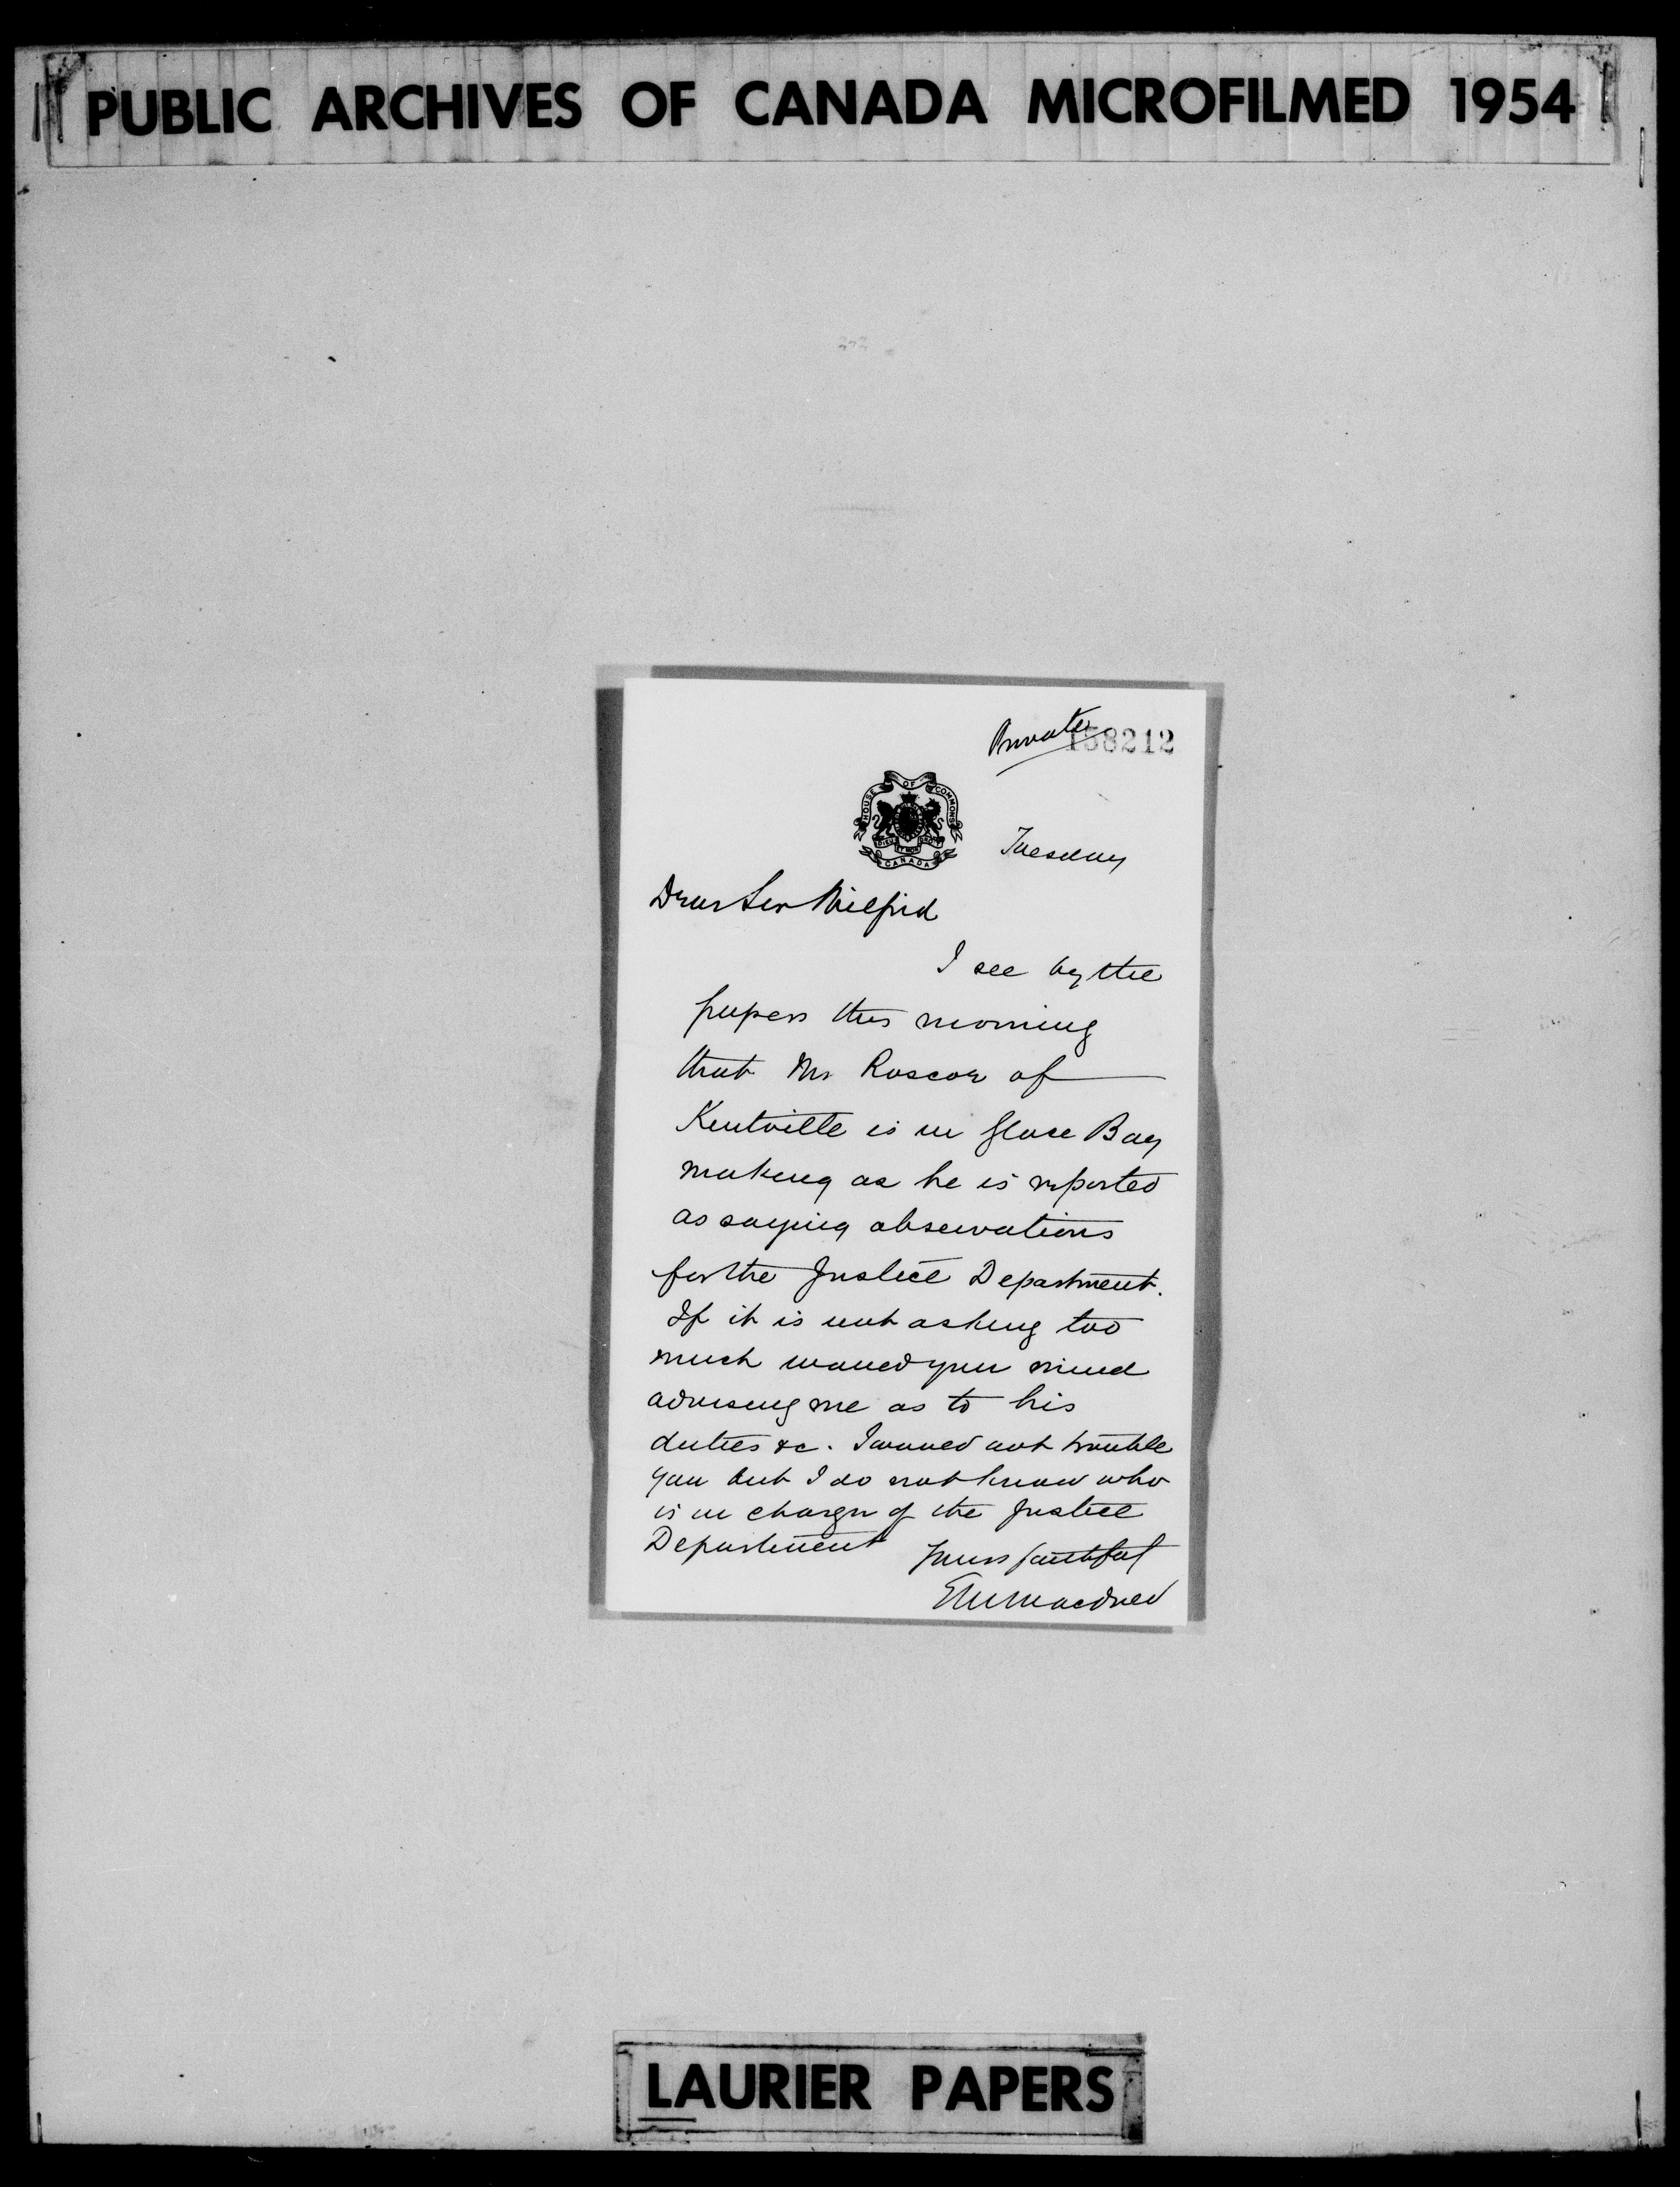 PUBLIC ARCHIVES OF CANADA MICROFILMED 1954
Private
158212
HOUSE OF COMMONS
DIEU ET MON DROIT
CANADA
Tuesday
Dear Sir Wilfrid
I see by the
papers this morning
that Mr Roscoe of
Kentville is in Glace Bay
making as he is reported
as saying observations
for the Justice Department.
If it is not asking too
much would you mind
advising me as to his
duties &c. I would not trouble
you but I do not know who
is in charge of the Justice
Department
Yours faithful
EM Macdonald
LAURIER PAPERS